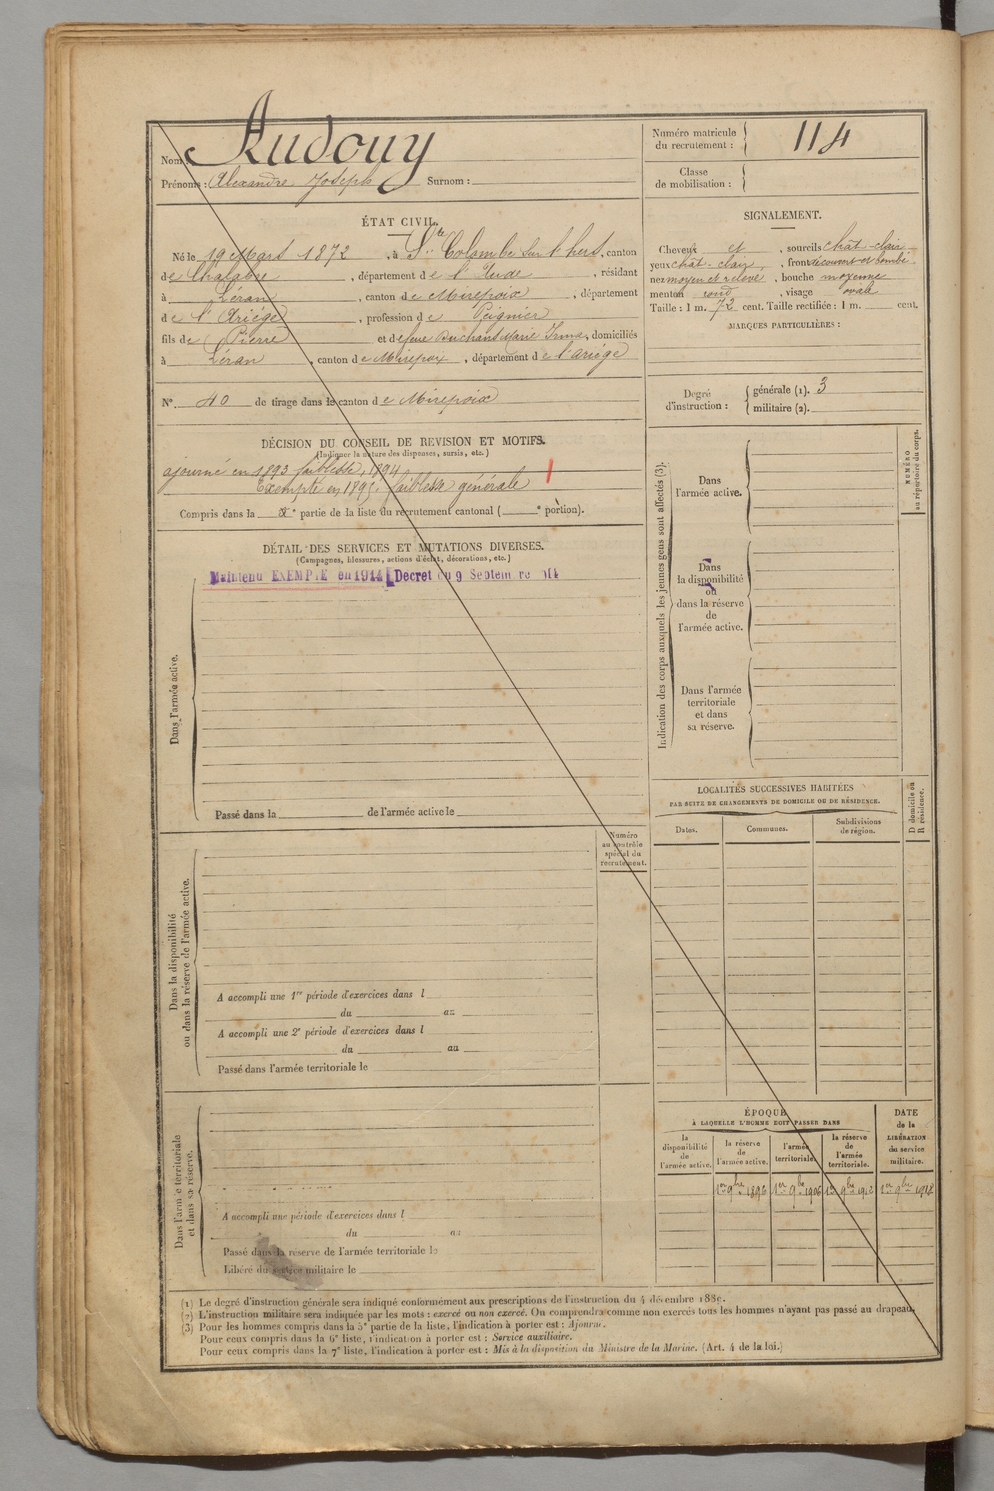 Nom : Audouy
Prénoms : Alexandre Joseph Surnom :
Numéro matricule du recrutement : 114
Classe de mobilisation :
ÉTAT CIVIL.
Né le 19 Mars 1872, à Ste Colombe sur l'hers, canton
de Chalabre, département de l'Aude, résidant
à Léran, canton de Mirepoix, département
de l'Ariége, profession de Peignier
fils de Pierre et de feue Marie Irma, domiciliés
à Léran, canton de Mirepoix, département de l'ariége
N° 40 de tirage dans le canton de Mirepoix
DÉCISION DU CONSEIL DE REVISION ET MOTIFS.
(Indiquer la nature des dispenses, sursis, etc.)
ajourné en 1893 faiblesse, 1894
Exempté en 1895. faiblesse générale
Compris dans la e partie de la liste du recrutement cantonal ( e portion).
DÉTAIL DES SERVICES ET MUTATIONS DIVERSES.
(Campagnes, blessures, actions d'éclat, décorations, etc.)
Maintenu EXEMPTE en 1914 Decret du 9 Septembre 14
Dans l'armée active.
Passé dans la de l'armée active le
Numéro
au contrôle
spécial du
recrutement.
Dans la disponibilité
ou dans la réserve de l'armée active.
A accompli une 1re période d'exercices dans l
du au
A accompli une 2e période d'exercices dans l
du au
Passé dans l'armée territoriale le
Dans l'armée territoriale
et dans sa réserve.
A accompli une période d'exercices dans l
du au
Passé dans la réserve de l'armée territoriale le
Libéré du service militaire le
SIGNALEMENT.
Cheveux et, sourcils chât-clair
yeux chât-clair, front découvert et bombé
nez moyen et relevé, bouche moyenne
menton rond, visage ovale
Taille : 1 m. 72 cent. Taille rectifiée : 1 m. cent.
MARQUES PARTICULIÈRES :
Degré d'instruction :
générale (1). 3
militaire (2).
Indication des corps auxquels les jeunes gens sont affectés (3).
NUMÉRO
au répertoire du corps.
Dans
l'armée active.
Dans
la disponibilité
ou
dans la réserve
de
l'armée active.
Dans l'armée
territoriale
et dans
sa réserve.
LOCALITÉS SUCCESSIVES HABITÉES
PAR SUITE DE CHANGEMENTS DE DOMICILE OU DE RÉSIDENCE.
Dates.
Communes.
Subdivisions
de région.
D domicile ou
R résidence.
ÉPOQUE
À LAQUELLE L'HOMME DOIT PASSER DANS
la
disponibilité
de
l'armée active.
la réserve
de
l'armée active.
l'armée
territoriale.
la réserve
de
l'armée
territoriale.
DATE
de la
LIBÉRATION
du service
militaire.
1er 9bre 1896 1er 9bre 1906 1er 9bre 1912 1er 9bre 1918
(1) Le degré d'instruction générale sera indiqué conformément aux prescriptions de l'instruction du 4 décembre 1889.
(2) L'instruction militaire sera indiquée par les mots : exercé ou non exercé. On comprendra comme non exercés tous les hommes n'ayant pas passé au drapeau.
(3) Pour les hommes compris dans la 5e partie de la liste, l'indication à porter est : Ajourné.
Pour ceux compris dans la 6e liste, l'indication à porter est : Service auxiliaire.
Pour ceux compris dans la 7e liste, l'indication à porter est : Mis à la disposition du Ministre de la Marine. (Art. 4 de la loi.)